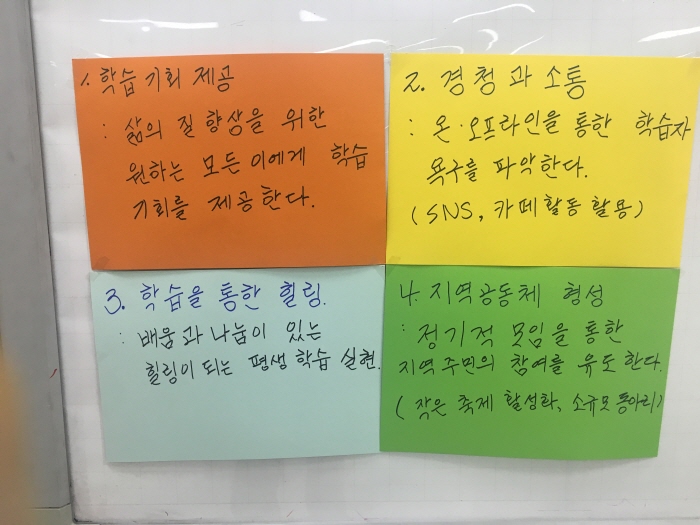 1. 학습 기회 제공
: 삶의 질 향상을 위한
원하는 모든 이에게 학습
기회를 제공한다.
2. 경청과 소통
: 온·오프라인을 통한 학습자
욕구를 파악한다.
(SNS, 카페활동 활용)
3. 학습을 통한 힐링.
: 배움과 나눔이 있는
힐링이 되는 평생학습 실현.
4. 지역공동체 형성
: 정기적 모임을 통한
지역주민의 참여를 유도한다.
(작은 축제 활성화, 소규모 동아리)